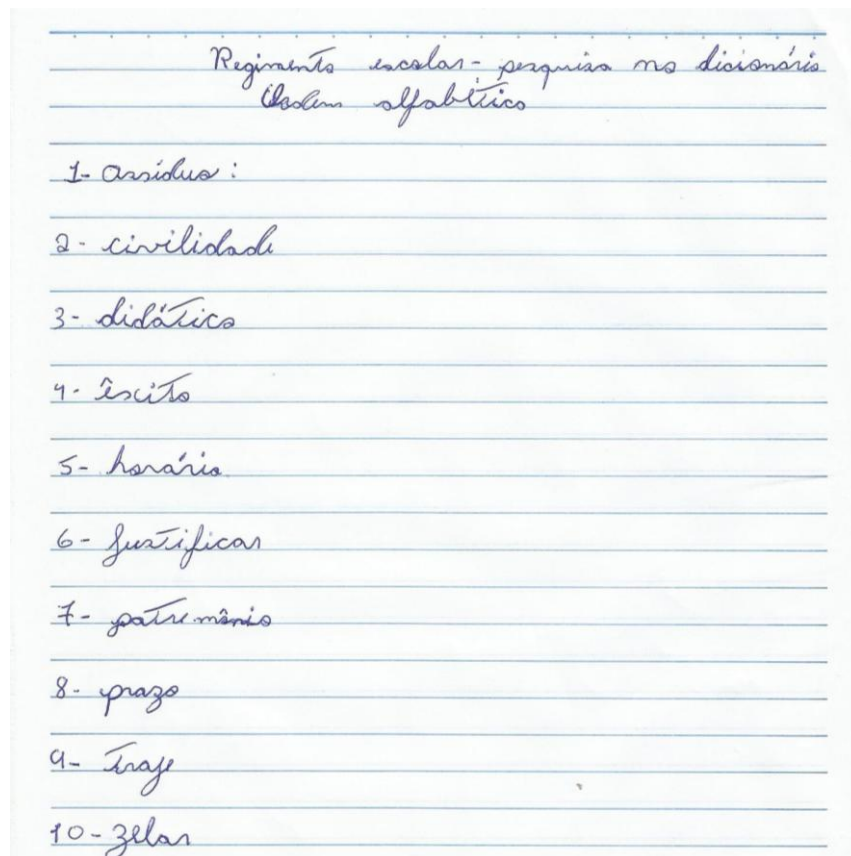 Regimento escolar - pesquisa no dicionário
Ordem alfabético
1- assíduo:
2- civilidade
3- didático
4- êxcito
5- horário
6- justificar
7- patremônio
8- prazo
9- Traje
10- zelar